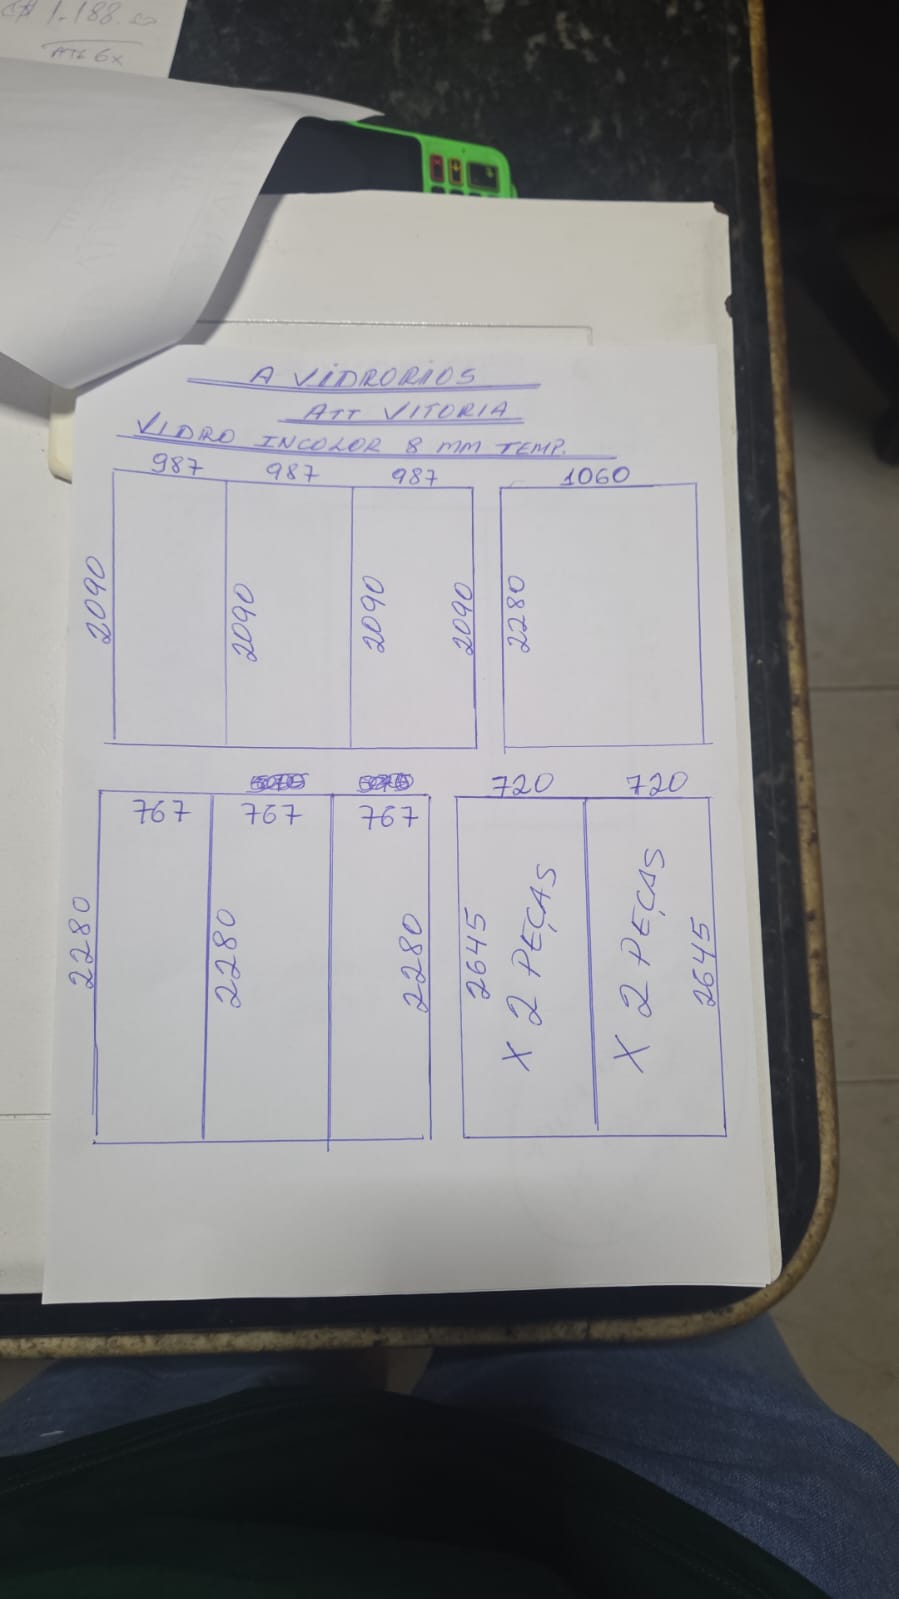 1.188.00
ATÉ 6X
A VIDRORIOS
ATT VITORIA
VIDRO INCOLOR 8 MM TEMP.
987 987 987 1060
2090 2090 2090 2090 2280
720 720
767 767 767
2280 2280 2280 2645 X 2 PEÇAS X 2 PEÇAS 2645